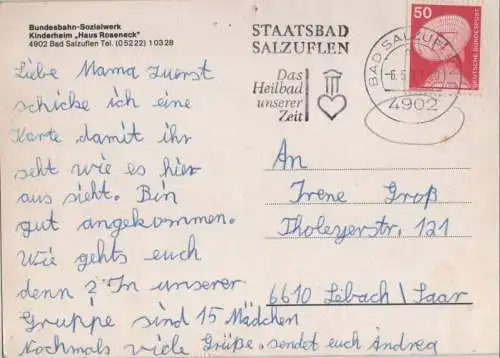 Bundesbahn-Sozialwerk
Kinderheim „Haus Roseneck"
4902 Bad Salzuflen Tel. (05222) 10328
STAATSBAD
SALZUFLEN
Das
Heilbad
unserer
Zeit
50
DEUTSCHE BUNDESPOST
BAD SALZUFLEN
4902
Liebe Mama zuerst
schicke ich eine
Karte damit ihr
seht wie es hier
aus sieht. Bin
gut angekommen.
Wie gehts euch
denn ? In unserer
Gruppe sind 15 Mädchen
Nochmals viele Grüße, sendet euch Andrea
An
Irene Groß
Tholeyerstr. 121
6610 Lebach/Saar